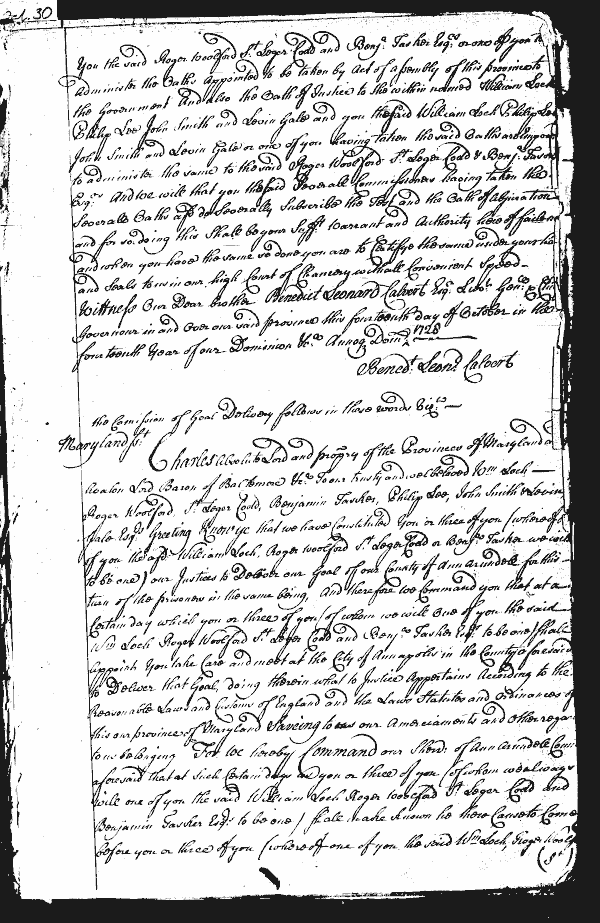 21.30
You the said Roger Woolford St. Leger Codd and Benja. Tasker Esqrs. or one of you to
administer the Oaths Appointed to be taken by Act of assembly of this province to
the Government And also the Oath of Justice to the within named William Lock
Philip Lee John Smith and Levin Gale and you the said William Lock Philip Lee
John Smith and Levin Gale or one of you having taken the said Oaths are Impow
to administer the same to the said Roger Woolford St. Leger Codd & Benja. Tasker
Esqrs. And we will that you the said Severall Commissioners having taken the
Severall Oaths afd. do Severally Subscribe the Test and the Oath of Abjuration
and for so doing this Shall be your Sufft. Warrant and Authority hereof faile not
and when you have the same so done you are to Certifye the same under your ha
and Seals to us in our high Court of Chancery with all Convenient Speed
Wittness Our Dear brother Benedict Leonard Calvert Esqr. Leut. Genll. &
Governour in and over our said province this fourteenth day of October in the
fourteenth Year of our Dominion &c. Annoq Domi. 1728
Benedt. Leond. Calvert
the Comission of Goal Delivery follows in these words Vizt.
Maryland sst.
Charles absolute Lord and propry of the Provinces of Maryland a
Avalon Lord Baron of Baltemore &c. To our trusty and well beloved Wm. Lock
Roger Woolford St. Leger Codd, Benjamin Tasker, Philip Lee, John Smith & Levin
Gale Esqrs. Greeting Know ye that we have Constituted You or three of you (whereof
of you the afd. William Lock, Roger Woolford St. Leger Codd or Benja. Tasker we will
to be one) our Justices to Deliver our Goal of our County of Ann Arundell for this
turn of the prisoners in the same being, And therefore we Command you that at a
Certain day which you or three of you (of whom we will One of you the said
Wm. Lock Roger Woolford St. Leger Codd and Benja. Tasker Esqrs. to be one) shall
Appoint You take Care and meet at the City of Annapolis in the County aforesaid
to Deliver that Goal, doing therein what to Justice Appertains According to the
Reasonable Laws and Customs of England and the Laws Statutes and Ordinances of
this our province of Maryland Saveing to us our Amerciaments and other rega
to us belonging For we hereby Command our Sherr. of Ann Arundell Coun
aforesaid that at Such Certain days as you or three of you (of whom we always
will one of you the said William Lock Roger Woolford St. Leger Codd and
Benjamin Tasker Esqrs. to be one) shall make known he there Cause to Come
before you or three of you (whereof one of you the said Wm. Lock, Roger Woolf